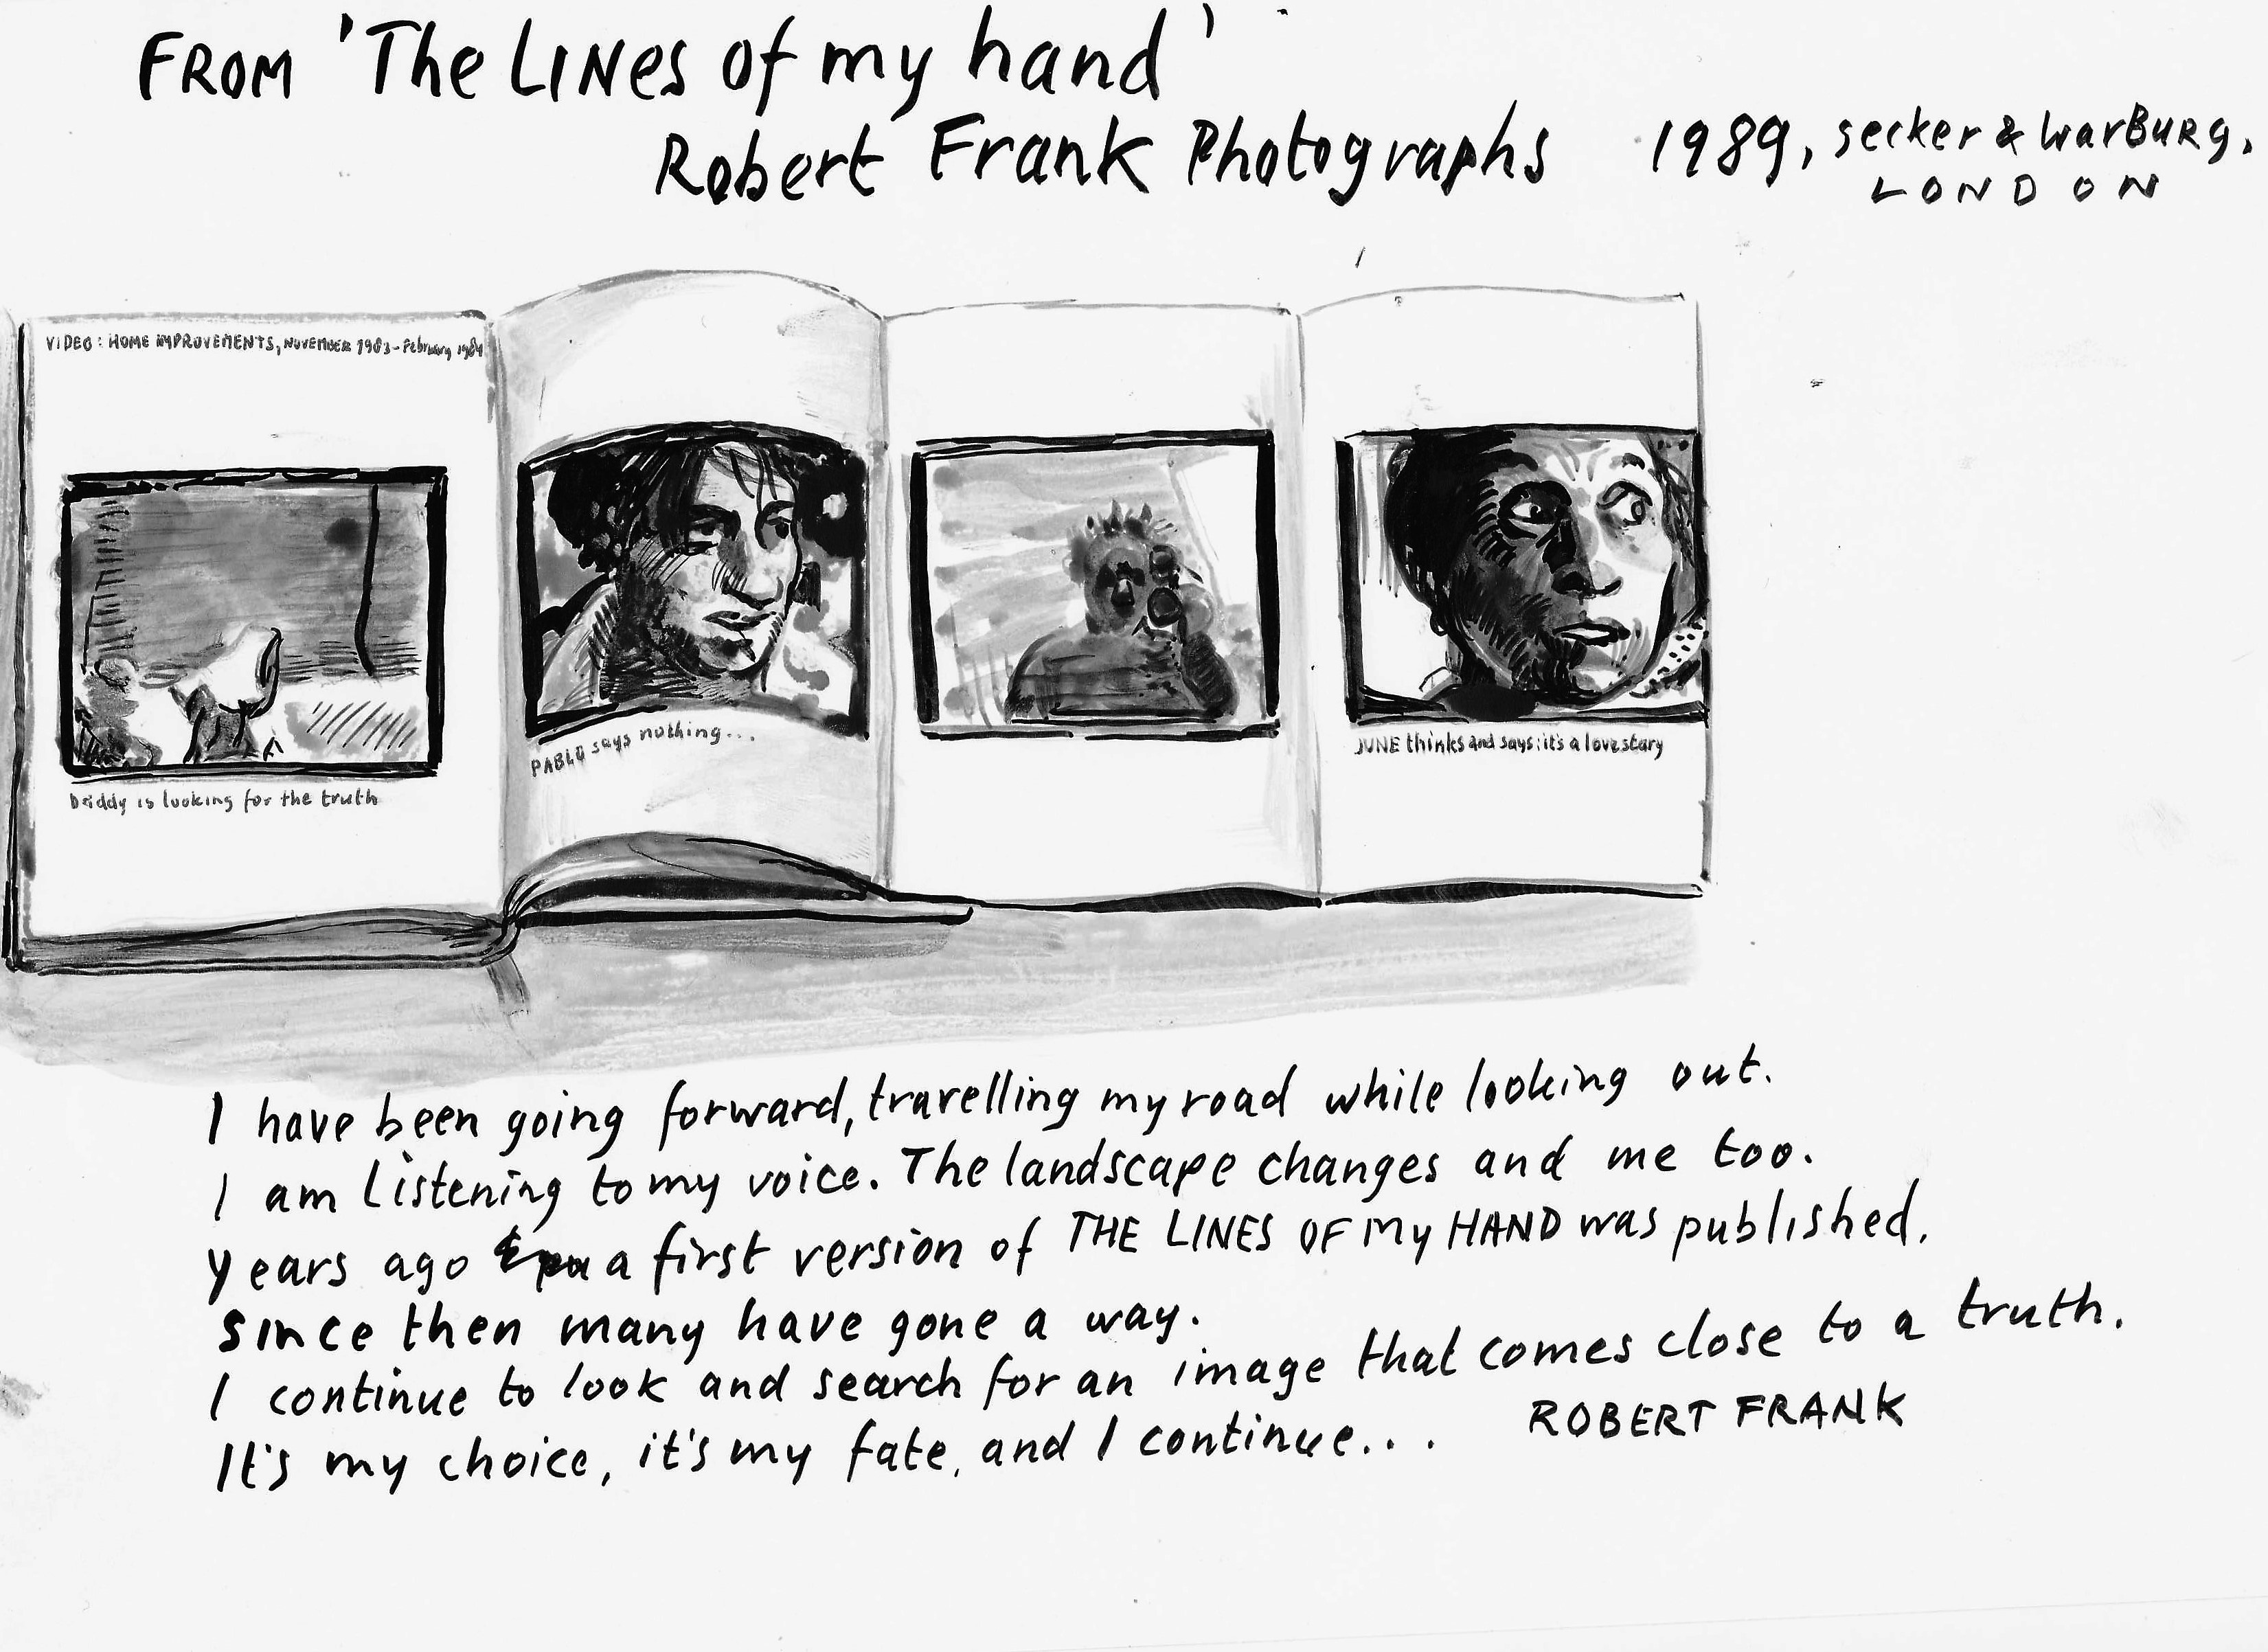 FROM 'The LINes of my hand'
Robert Frank Photographs
1989, secker & WarBuRg,
LONDON
VIDEO: HOME IMPROVEMENTS, NOVEMBER 1983 - February 1984
Daddy is looking for the truth
PABLO says nothing...
JUNE thinks and says: it's a lovestory
I have been going forward, travelling my road while looking out.
I am Listening to my voice. The landscape changes and me too.
years ago a first version of THE LINES OF My HAND was published.
since then many have gone a way.
I continue to look and search for an image that comes close to a truth.
It's my choice, it's my fate, and I continue...
ROBERT FRANK